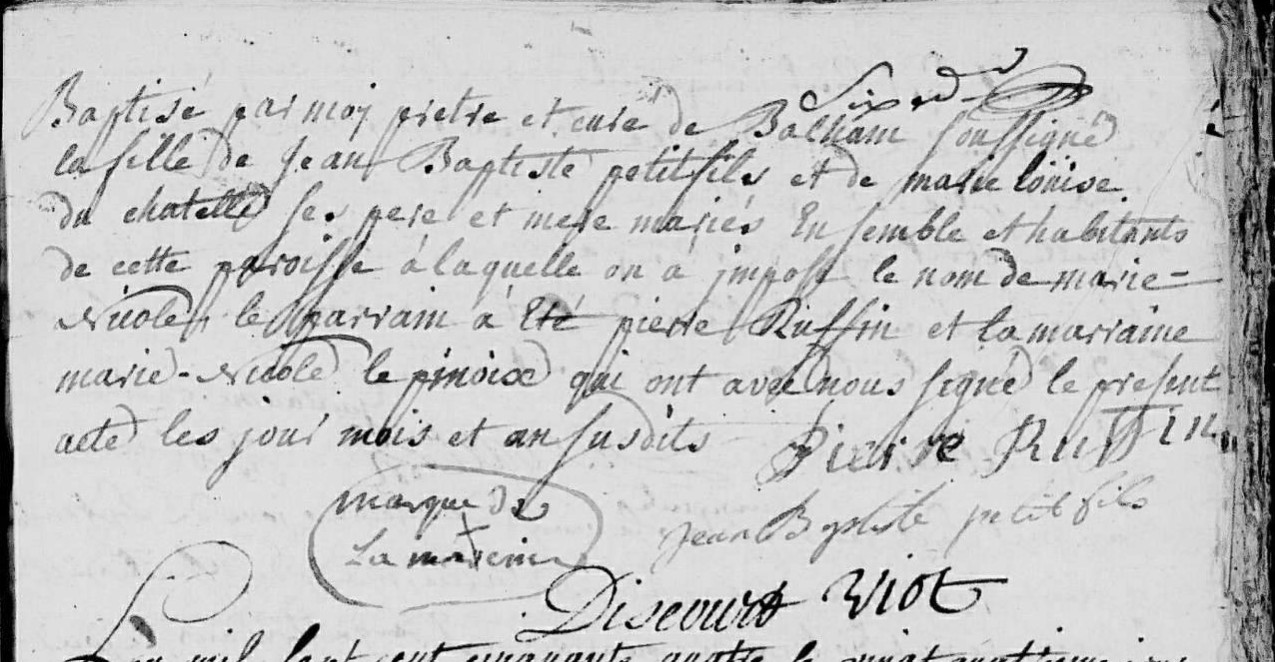 Six
Baptisé par moy pretre et curé de Balham soussigné
la fille de Jean Baptiste petitfils et de marie loüise
du chatelle ses pere et mere mariés Ensemble et habitants
de cette paroisse à laquelle on a jmposé le nom de marie-
Nicole, le parrain à Eté pierre Ruffin et la marraine
marie-Nicole le pinoix qui ont avec nous signé le present
acte les jour mois et an susdits Pierre Ruffin
marque de Jean Baptiste petit fils
La mareine
Discourt Viot
L'an mil sept cent cinquante quatre le vingt